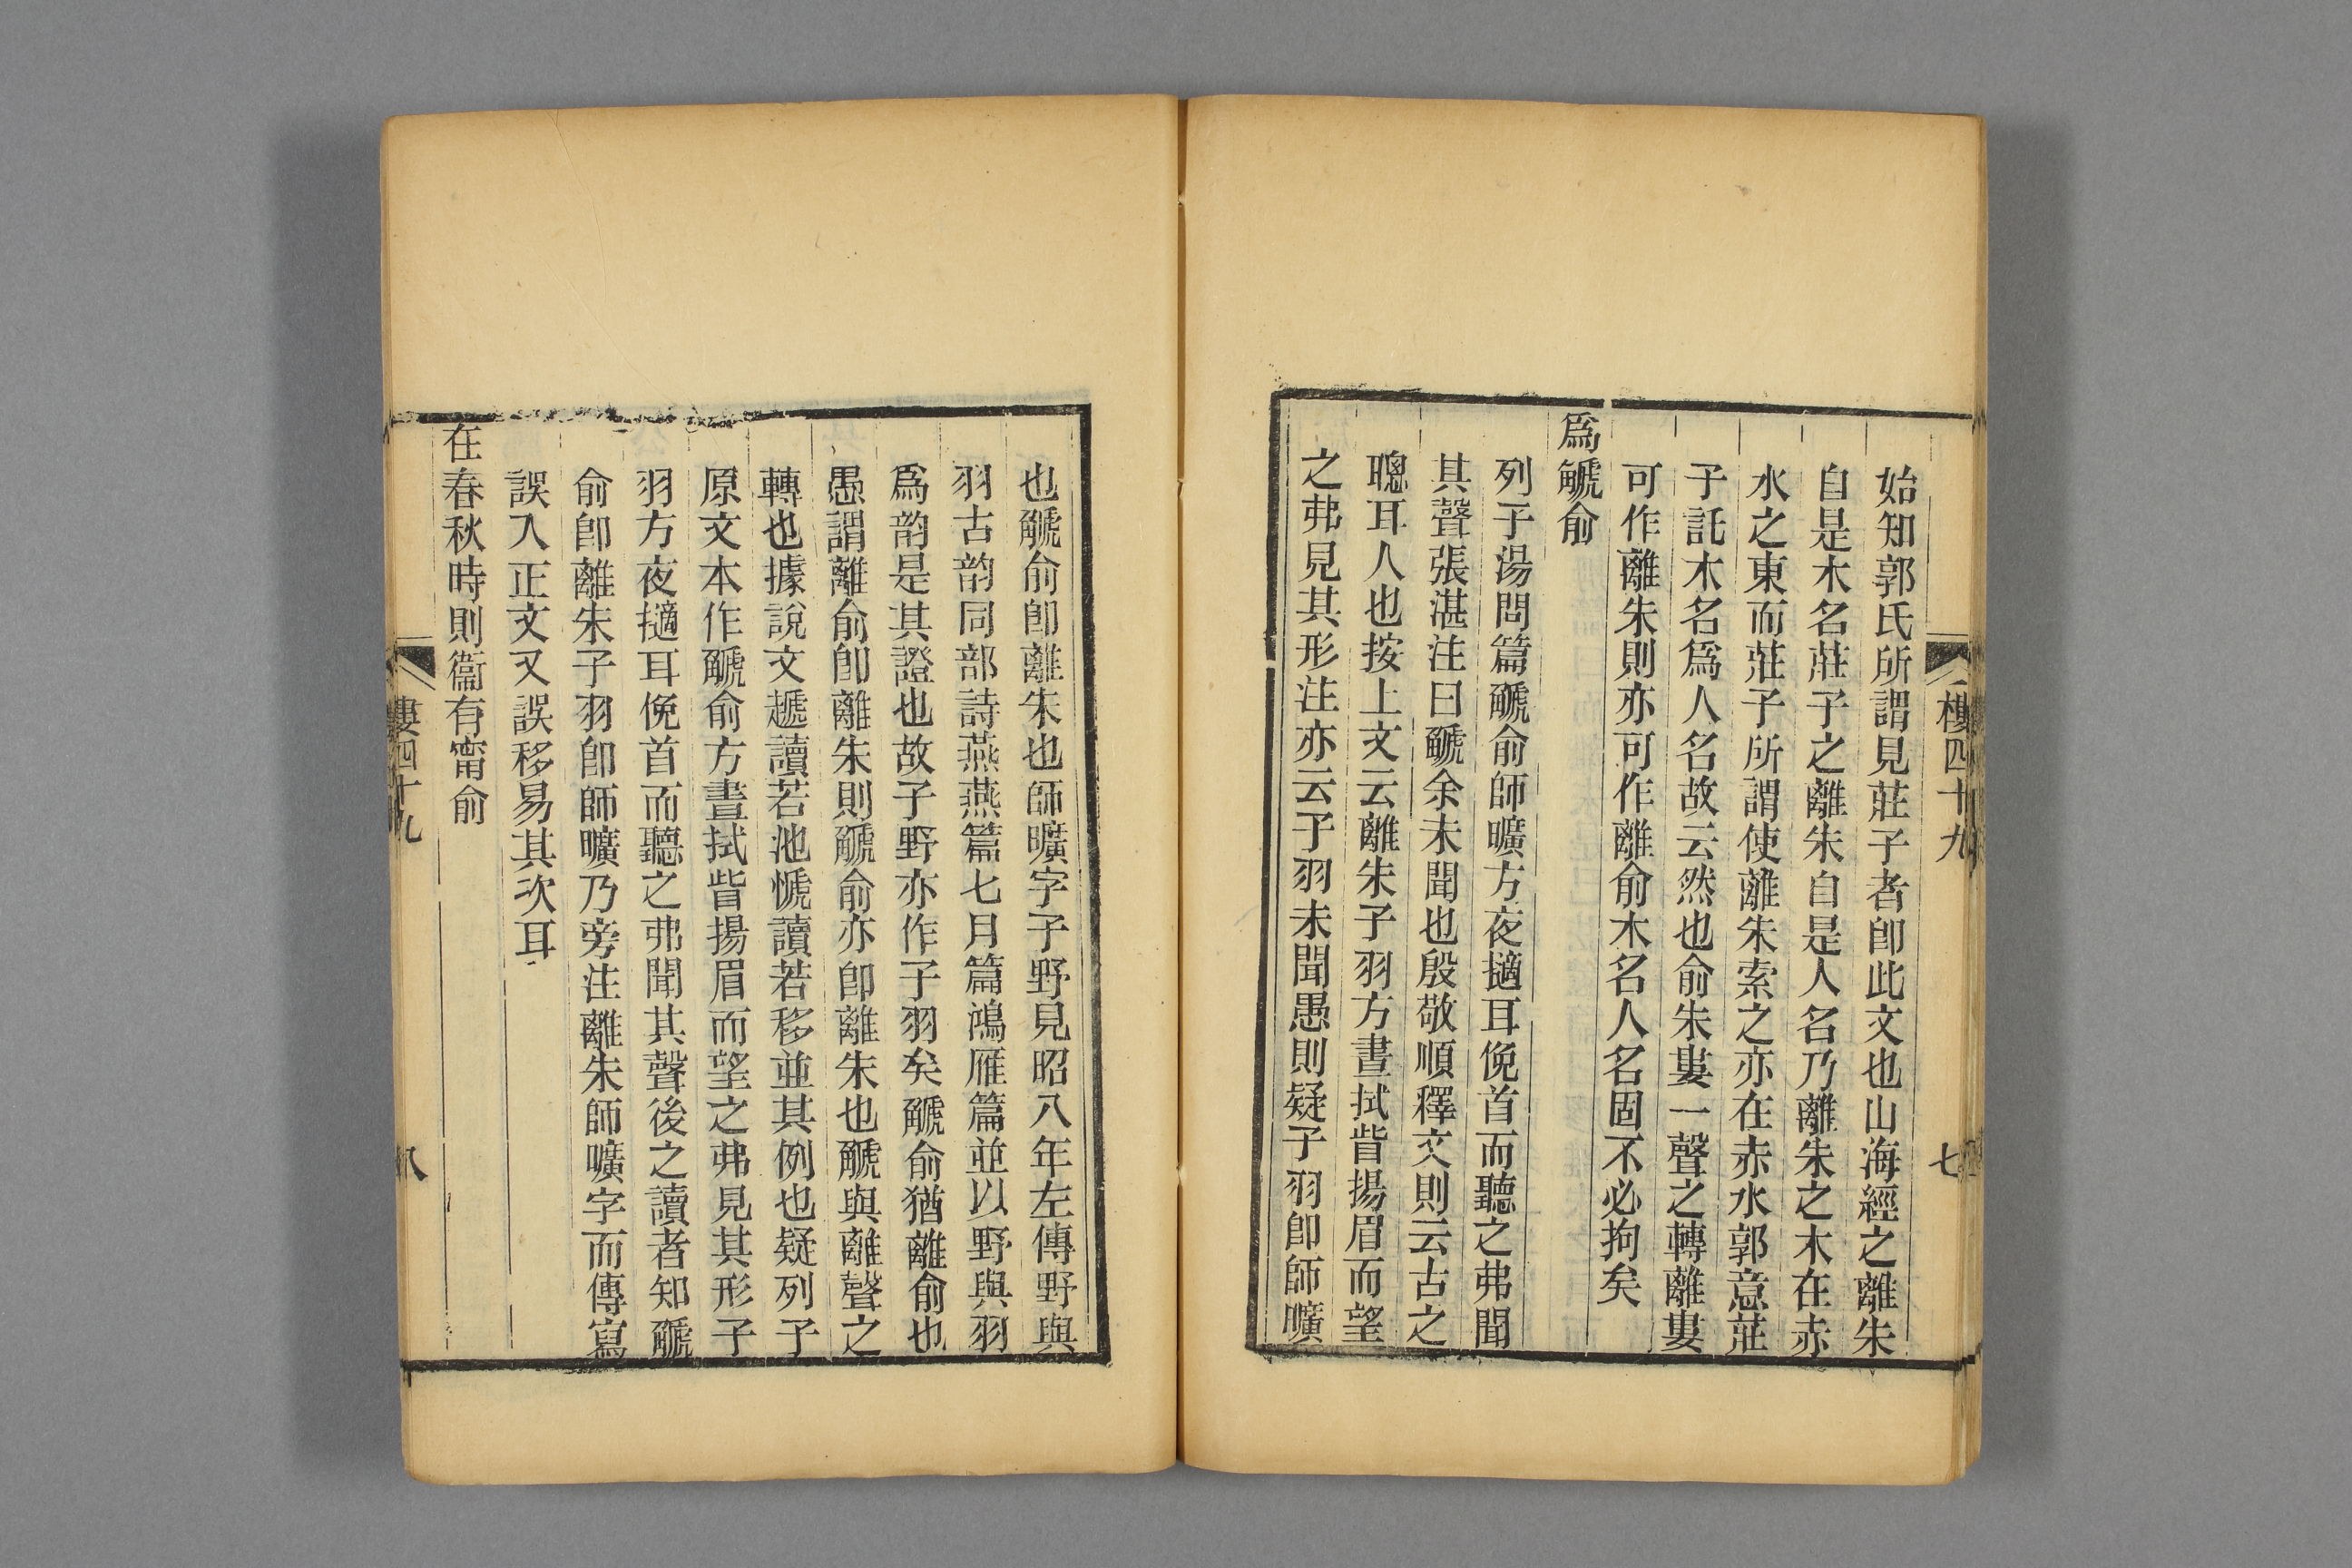 樓四十九
七
始知郭氏所謂見莊子者卽此文也山海經之離朱
自是木名莊子之離朱自是人名乃離朱之木在赤
水之東而莊子所謂使離朱索之亦在赤水郭意莊
子託木名爲人名故云然也俞朱婁一聲之轉離婁
可作離朱則亦可作離俞木名人名固不必拘矣
爲䚦俞
列子湯問篇䚦俞師曠方夜擿耳俛首而聽之弗聞
其聲張湛注曰䚦余未聞也殷敬順釋文則云古之
聰耳人也按上文云離朱子羽方晝拭眥揚眉而望
之弗見其形注亦云子羽未聞愚則疑子羽卽師曠
也䚦俞卽離朱也師曠字子野見昭八年左傳野與
羽古韵同部詩燕燕篇七月篇鴻雁篇並以野與羽
爲韵是其證也故子野亦作子羽矣䚦俞猶離俞也
愚謂離俞卽離朱則䚦俞亦卽離朱也䚦與離聲之
轉也據說文趧讀若池㥴讀若移並其例也疑列子
原文本作䚦俞方晝拭眥揚眉而望之弗見其形子
羽方夜擿耳俛首而聽之弗聞其聲後之讀者知䚦
俞卽離朱子羽卽師曠乃旁注離朱師曠字而傳寫
誤入正文又誤移易其次耳
在春秋時則衞有甯俞
婁四十九
八